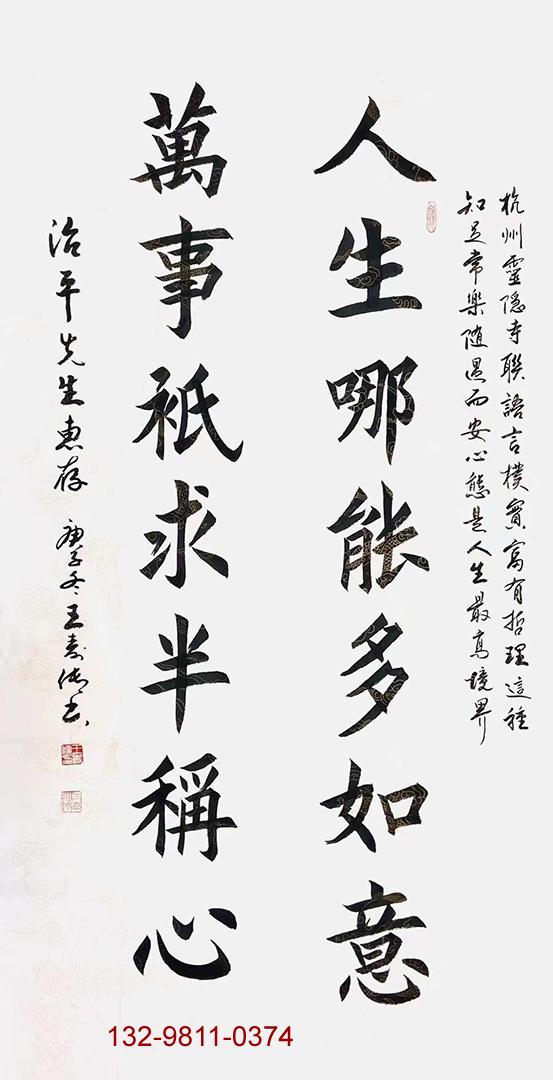 杭州靈隱寺聯語言樸實富有哲理這種
知足常樂随遇而安心態是人生最高境界
人生哪能多如意
萬事祇求半稱心
治平先生惠存 庚子冬王
132-9811-0374